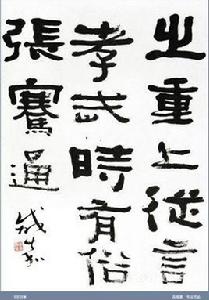 之重上從言
孝武時有俗
張騫通